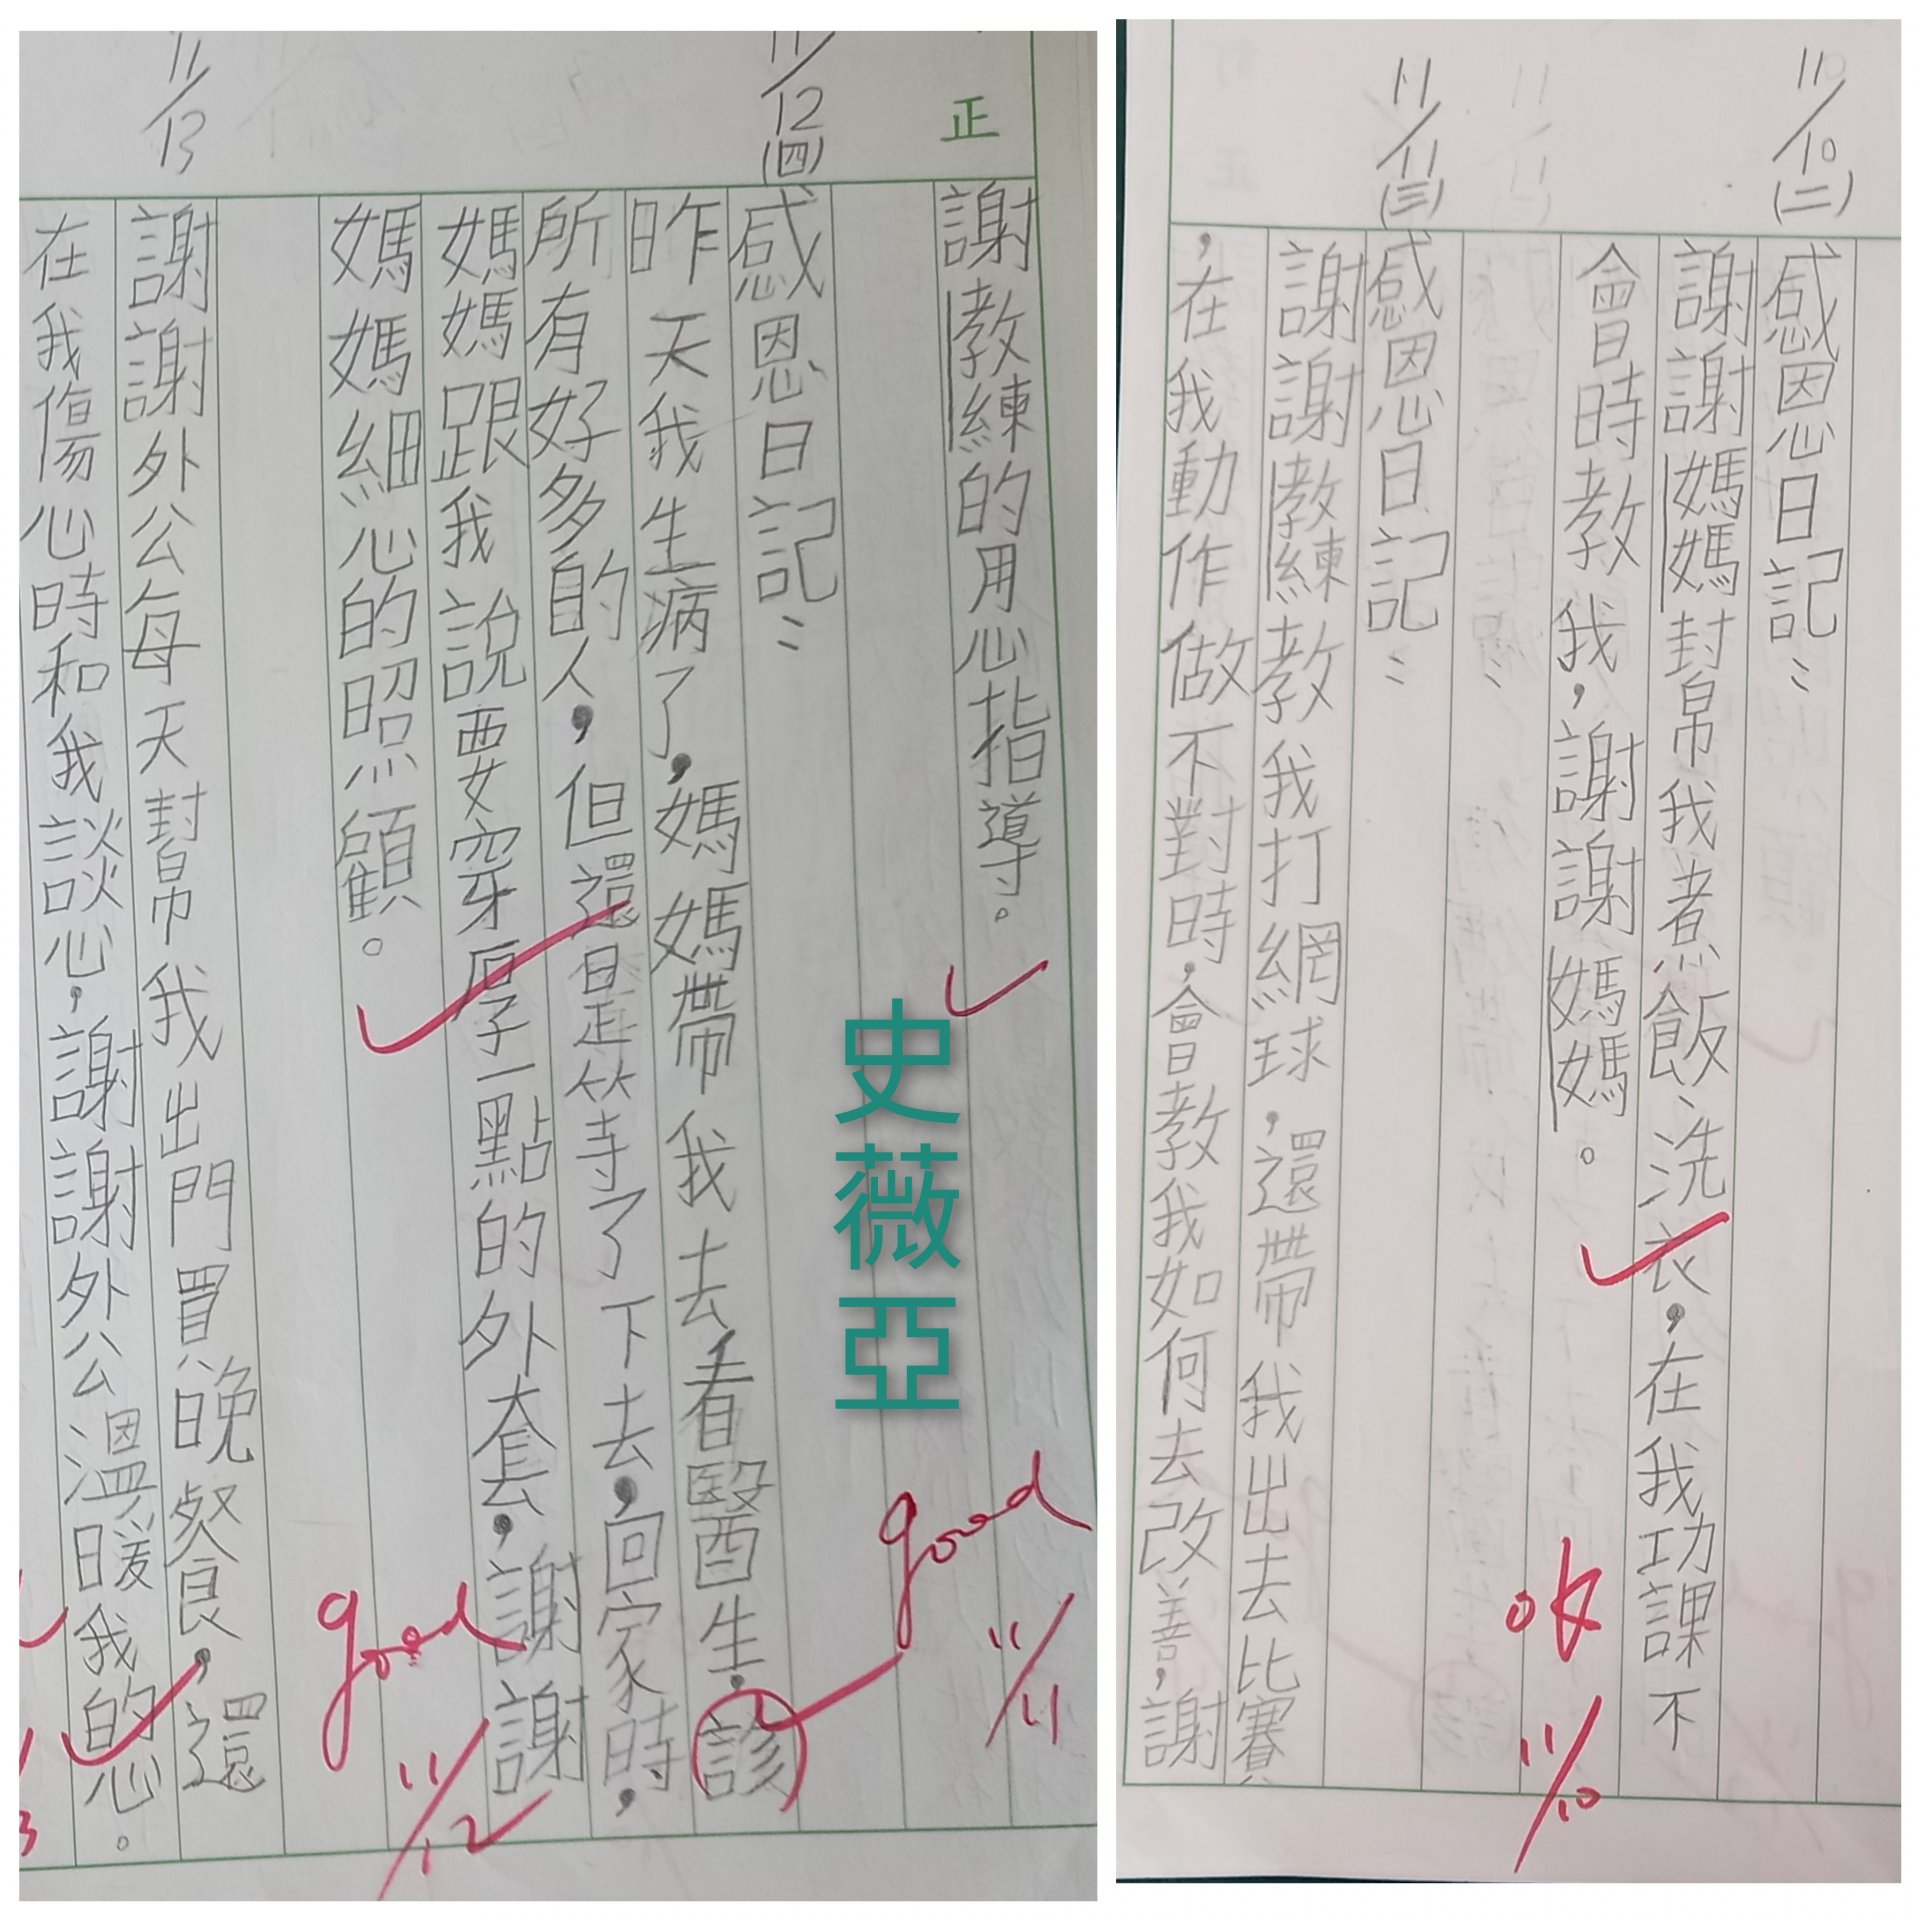 11/10(二)
感恩日記：
謝謝媽媽幫我煮飯、洗衣，在我功課不
會時教我，謝謝媽媽。
ok 11/10
11/11(三)
感恩日記：
謝謝教練教我打網球，還帶我出去比賽
，在我動作做不對時，會教我如何去改善，謝
正
謝教練的用心指導。
good 11/11
11/12(四)
感恩日記：
昨天我生病了，媽媽帶我去看醫生，診
所有好多的人，但還是等了下去，回家時，
媽媽跟我說要穿厚一點的外套，謝謝
媽媽細心的照顧。
good 11/12
11/13
謝謝外公每天幫我出門買晚餐，還
在我傷心時和我談心，謝謝外公溫暖我的心。
史薇亞